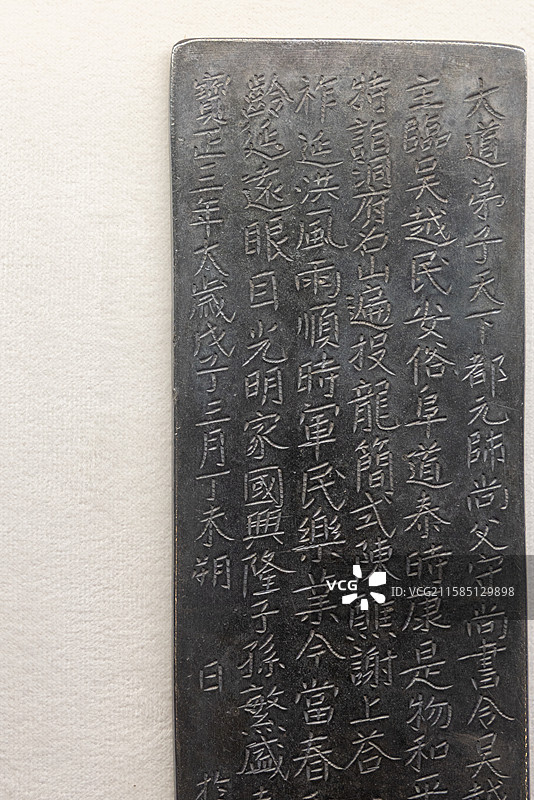 大道弟子天下都元帥尚父守尚書令吳越
主臨吳越民安俗阜道泰時康是物和平
特詣洞府名山遍投龍簡式陳醮謝上荅
祚延洪風雨順時軍民樂業今當春
齡延遠眼目光明家國興隆子孫繁盛
寶正三年太歲戊子三月丁未朔 日 於
VCG
ID: VCG211585129898